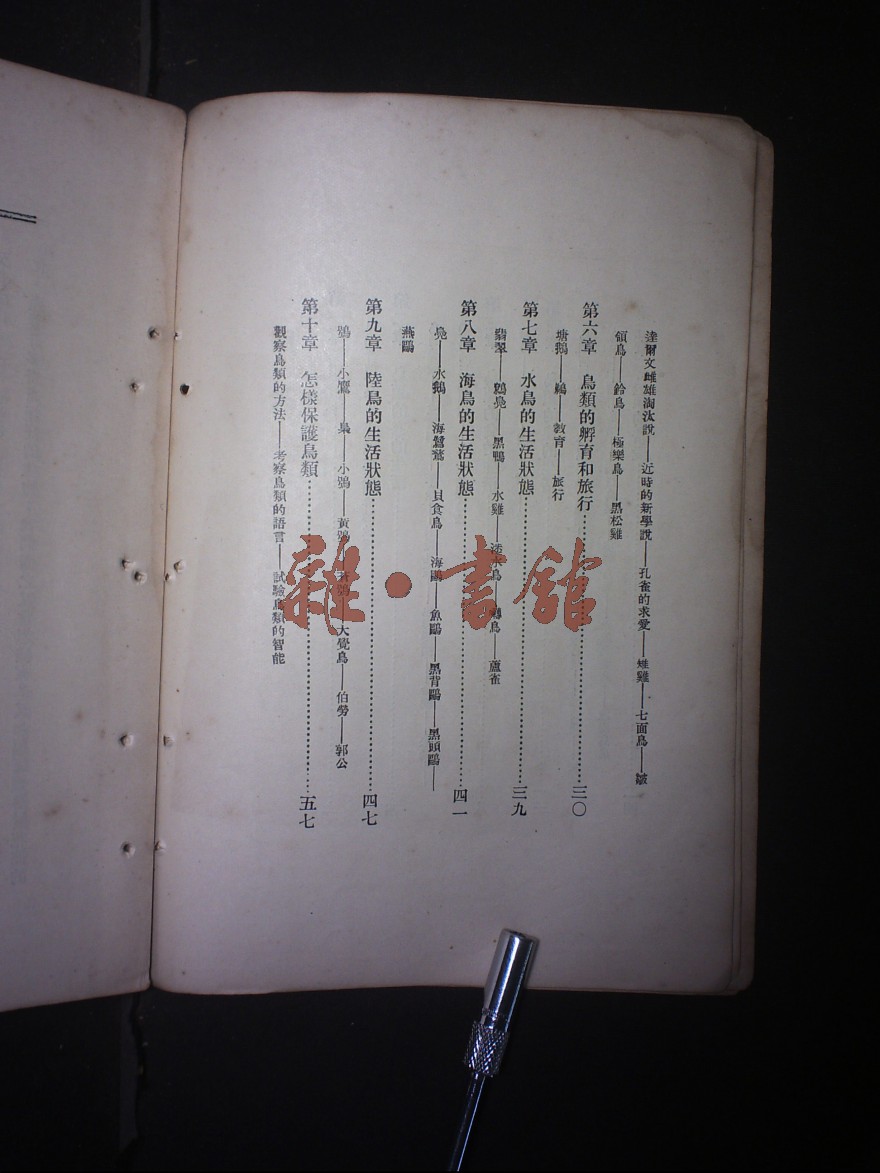 達爾文雌雄淘汰說——近時的新學說——孔雀的求愛——雉雞——七面鳥——皺
領鳥——鈴鳥——極樂鳥——黑松雞
第六章 鳥類的孵育和旅行……三〇
塘鵝——鷸——教育——旅行
第七章 水鳥的生活狀態……三九
翡翠——鸊鳧——黑鴨——水雞——鳥——蘆雀
第八章 海鳥的生活狀態……四一
鳧——水鵝——海鸕鶿——貝食鳥——海鷗——魚鷗——黑背鷗——黑頭鷗——
燕鷗
第九章 陸鳥的生活狀態……四七
鴞——小鷹——梟——小鴞——黃鴞——大覺鳥——伯勞——郭公
第十章 怎樣保護鳥類……五七
觀察鳥類的方法——考察鳥類的語言——試驗鳥類的智能
雜·書館